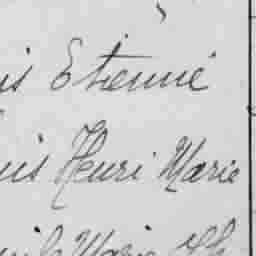 is Etienne
uis Henri Marie
Marie